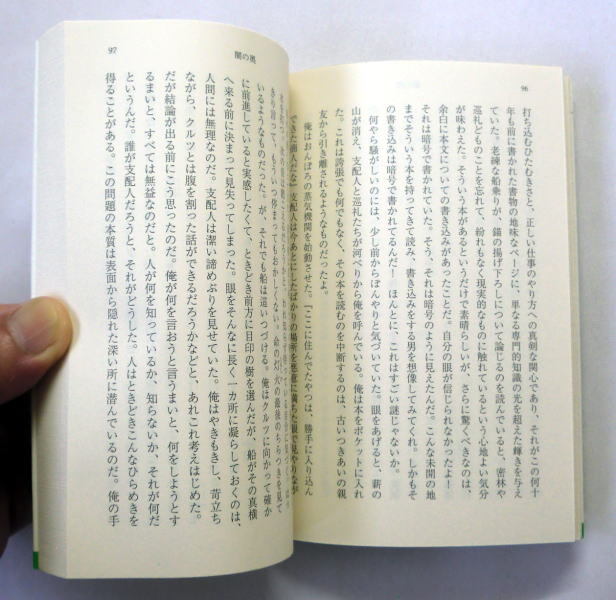 96
打ち込むひたむきさと、正しい仕事のやり方への真剣な関心であり、それがこの何十
年も前に書かれた書物の地味なページに、単なる専門的知識の光を超えた輝きを与え
ていた。老練な船乗りが、錨の揚げ下ろしについて論じるのを読んでいると、密林や
巡礼どものことを忘れて、紛れもなく現実的なものに触れているという心地よい気分
が味わえた。そういう本があるというだけで素晴らしいが、さらに驚くべきなのは、
余白に本文についての書き込みがあったことだ。自分の眼が信じられなかったよ!
それは暗号で書かれていた。そう、それは暗号のように見えたんだ。こんな未開の地
までそういう本を持ってきて読み、書き込みをする男を想像してみてくれ。しかもそ
の書き込みは暗号で書かれてるんだ! ほんとに、これはすごい謎じゃないか。
何やら騒がしいのには、少し前からぼんやりと気づいていた。眼をあげると、薪の
山が消え、支配人と巡礼たちが河べりから俺を呼んでいる。俺は本をポケットに入れ
た。これは誇張でも何でもなく、その本を読むのを中断するのは、古いつきあいの親
友から引き離されるようなものだったよ。
俺はおんぼろの蒸気機関を始動させた。『ここに住んでたやつは、勝手に入り込ん
できた商人だな』支配人は今あとにしたばかりの場所を悪意に満ちた眼で見やりなが
97
闇の奥
きり言って、もういつ停まってもおかしくない。命の灯火の最後のちらつきを見て
いるようなものだった。が、それでも船は這いつづける。俺はクルツに向かって確か
に前進していると実感したくて、ときどき前方に目印の樹を選んだが、船がその真横
へ来る前に決まって見失ってしまった。眼をそんなに長く一カ所に凝らしておくのは、
人間には無理なのだ。支配人は潔い諦めぶりを見せていた。俺はやきもきし、苛立ち
ながら、クルツとは腹を割った話ができるだろうかなどと、あれこれ考えはじめた。
だが結論が出る前にこう思ったのだ。俺が何を言おうと言うまいと、何をしようとす
るまいと、すべては無益なのだと。人が何を知っているか、知らないか、それが何だ
というんだ。誰が支配人だろうと、それがどうした。人はときどきこんなひらめきを
得ることがある。この問題の本質は表面から隠れた深い所に潜んでいるのだ。俺の手